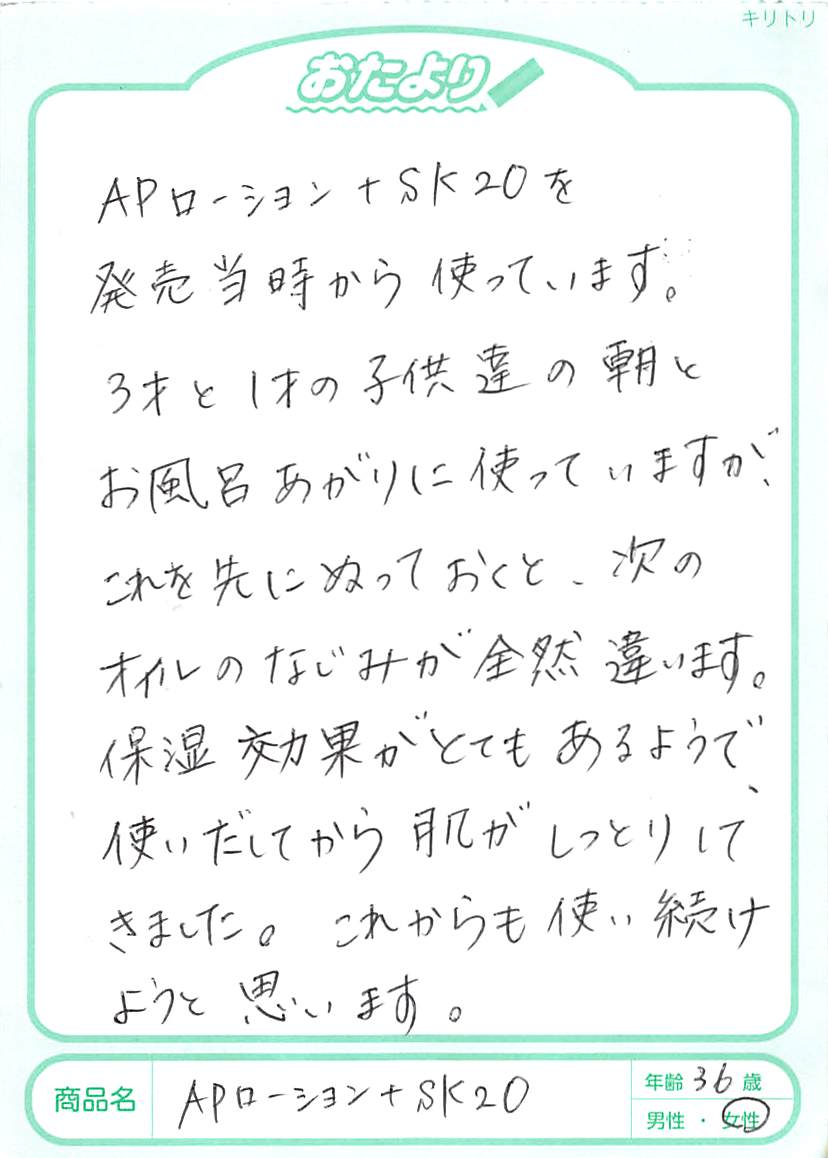 キリトリ
おたより
APローション+SK20を
発売当時から使っています。
3才と1才の子供達の朝と
お風呂あがりに使っていますが、
これを先にぬっておくと、次の
オイルのなじみが全然違います。
保湿効果がとてもあるようで、
使いだしてから肌がしっとりして
きました。これからも使い続け
ようと思います。
商品名 APローション+SK20
年齢 36歳
男性・女性